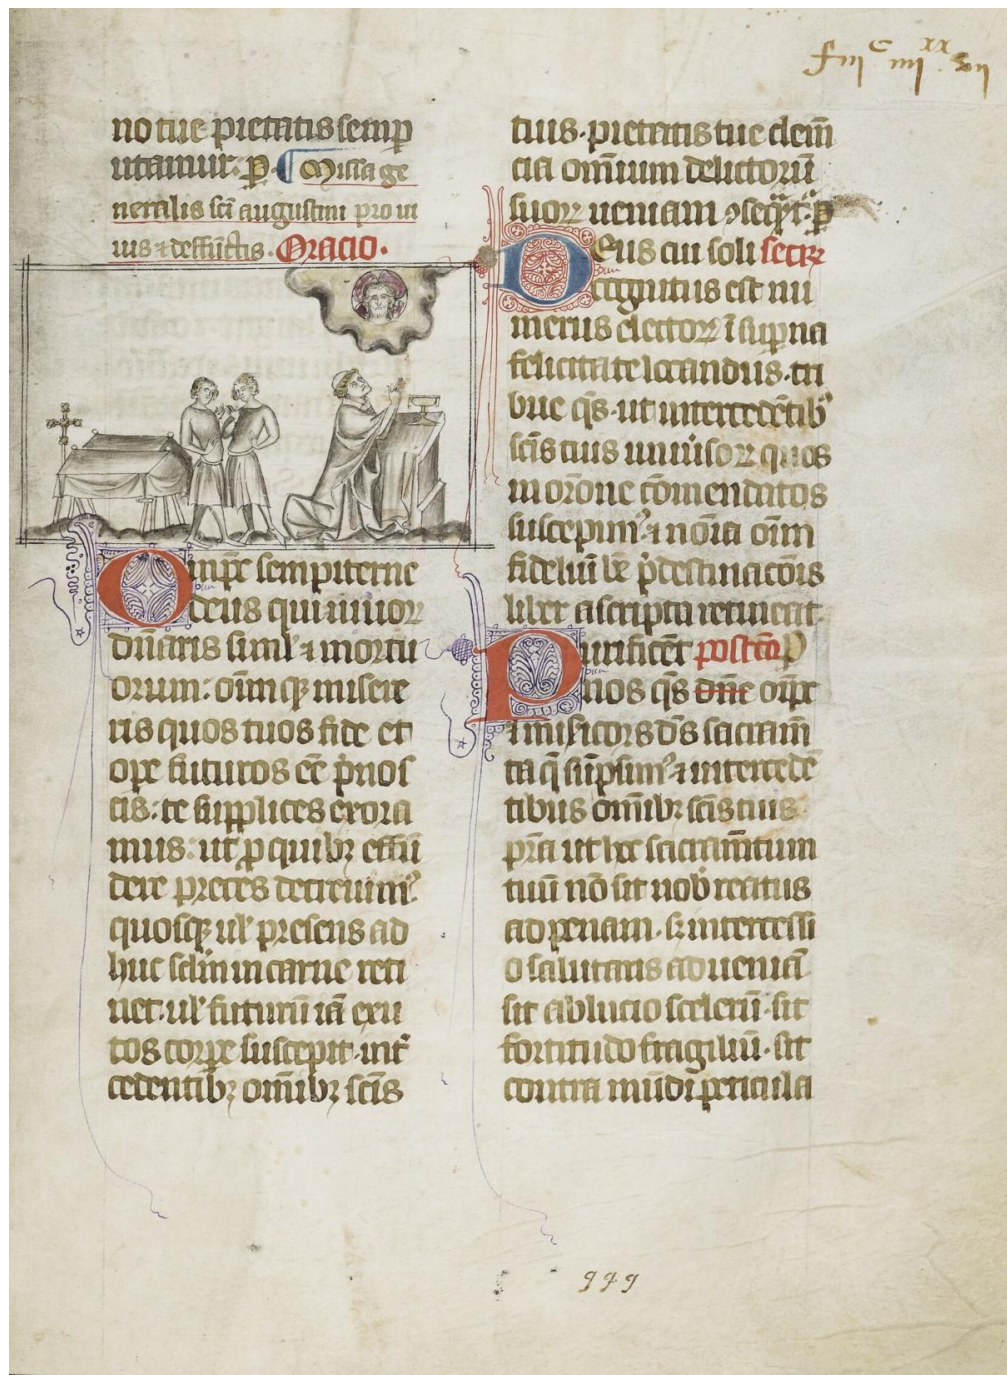 fiii C iiii XX xii
no tue pietatis semp
utamur. p. ¶ Missa ge
neralis sci augustini pro ui
uis ⁊ deffunctis. Oracio.
Omnipoten sempiterne
deus qui uiuoꝝ
dnaris simul ⁊ mortu
orum: oim qꝫ misere
ris quos tuos fide et
opꝫ futuros eē pnos
cis: te supplices exora
mus: ut p quibꝫ effun
dere preces decreuimꝰ
quosqꝫ ul' presens ad
huc sclm in carne reti
net. ul' futurū iā exu
tos corpꝫ suscepit. int̄
cedentibꝫ omībꝫ scīs
tuis. pietatis tue clem̄
cia omīum delictorū
suoꝝ ueniam ꝯseqr̄t. p
Deus cui soli secꝝ
cognitus est nu
merus electoꝝ ī supna
felicitate locandus. tri
bue qs. ut intercedētibꝰ
scīs tuis uniu'soꝝ quos
in orōne cōmendatos
suscepimꝰ ⁊ nōra oīm
fideliū bē pdestinacōis
liber ascripta retineat.
Purificēt postcō p
nos qs dn̄e om̄ps
⁊ misicors ds sacram̄
ta q̄ sūpsimꝰ ⁊ intercedē
tibus omībꝫ scīs tuis
pr̄a ut hec sacramētum
tuū nō sit nob' reatus
ad penam. sꝫ intercessi
o salutaris ad ueniā
sit ablucio scelerū. sit
fortitudo fragiliū. sit
contra mūdi pericula